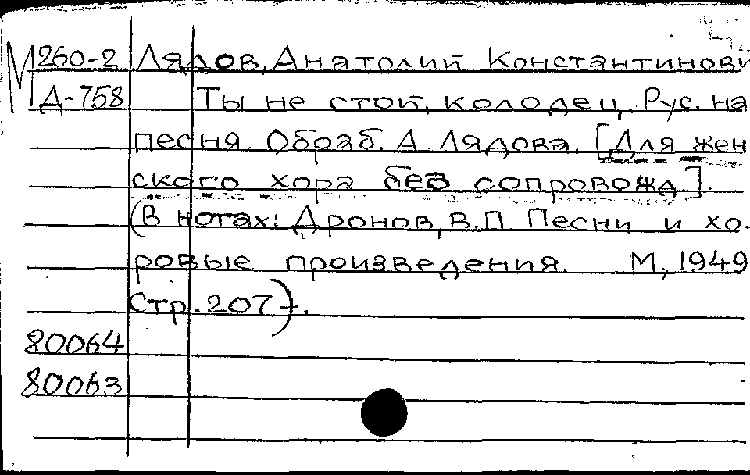 М 260-2 Лядов, Анатолий Константинови
Д-758 Ты не стой, колодец. Рус. на
песня. Обраб. А. Лядова. [Для жен
ского хора без сопровожд].
(В нотах: Дронов, В.П. Песни и хо-
ровые произведения. М, 1949
Стр. 207).
80064
80063